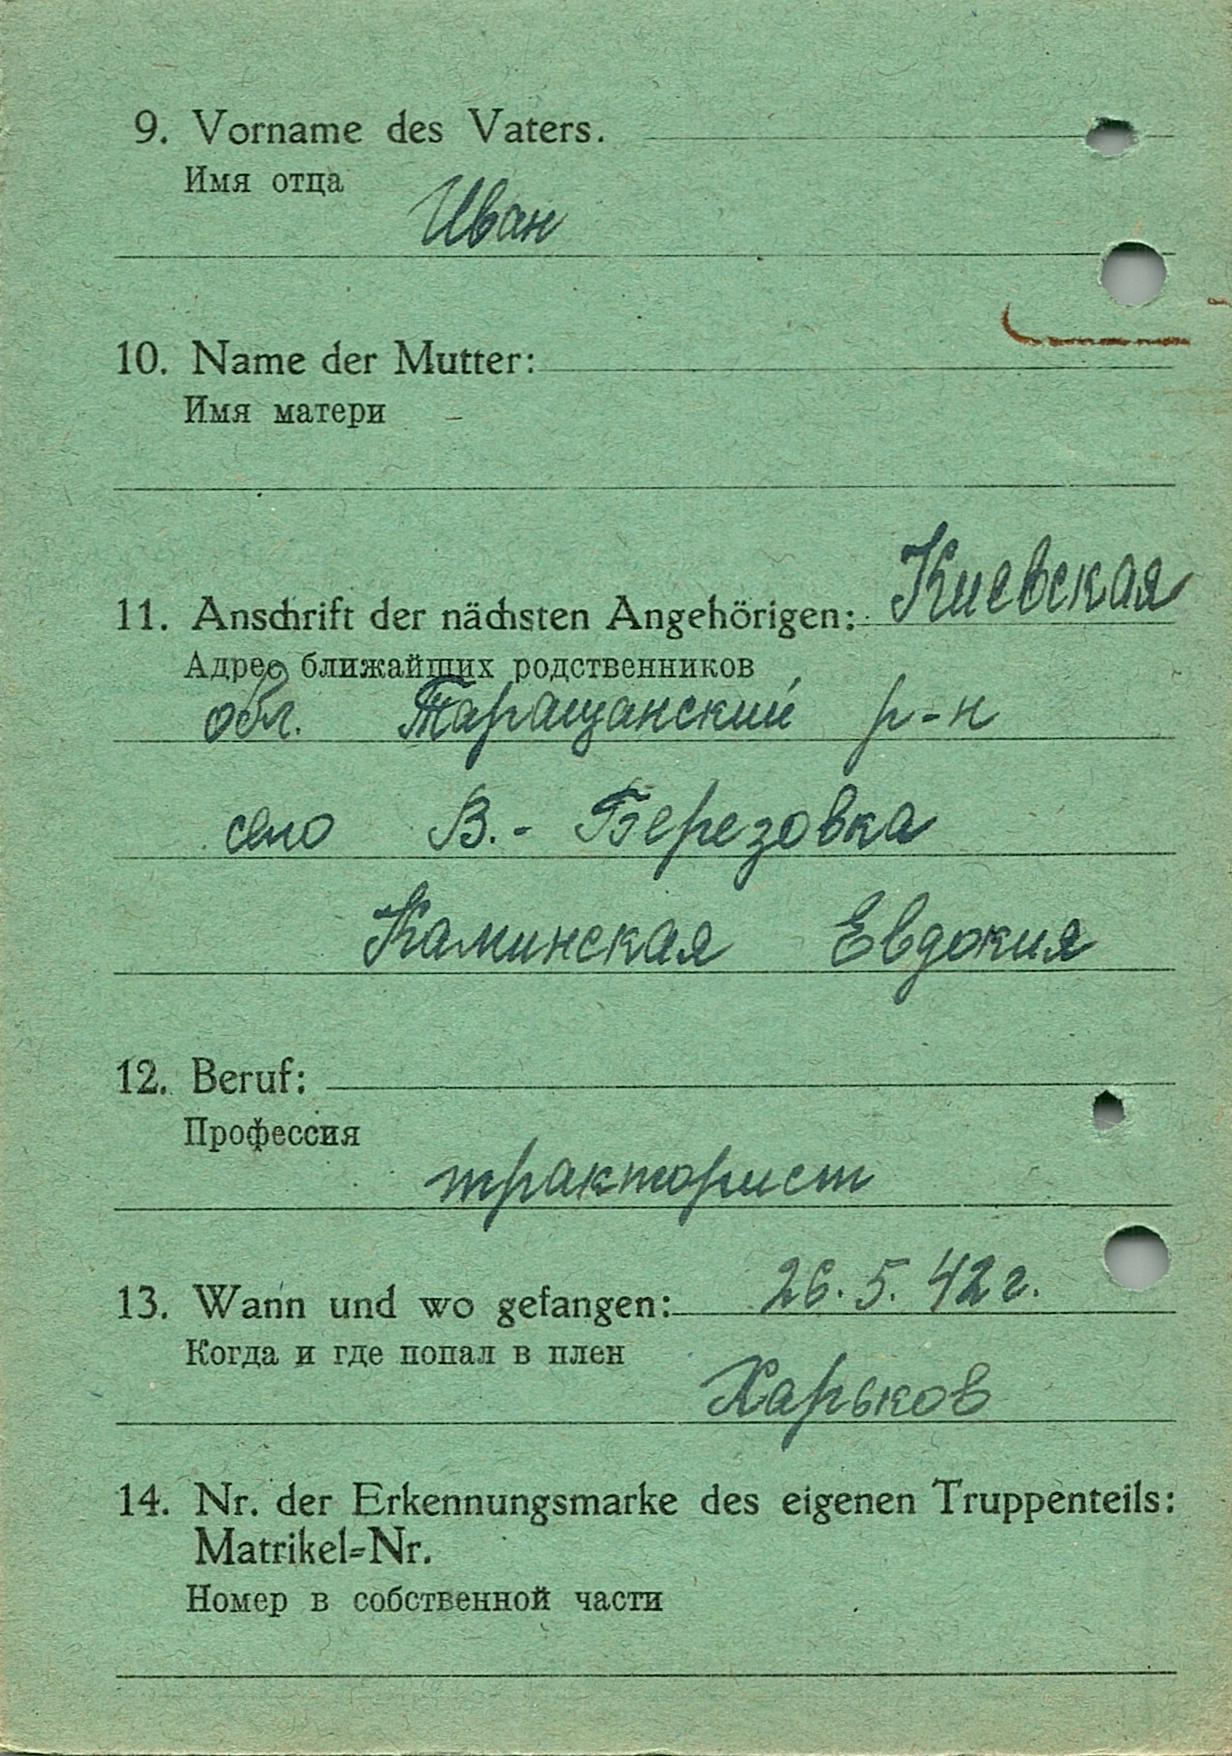 9. Vorname des Vaters.
Имя отца
Иван
10. Name der Mutter:
Имя матери
11. Anschrift der nächsten Angehörigen: Киевская
Адрес ближайших родственников
обл. Таращанский р-н
село В.- Березовка
Каминская Евдокия
12. Beruf:
Профессия
тракторист
13. Wann und wo gefangen: 26.5.42 г.
Когда и где попал в плен
Харьков
14. Nr. der Erkennungsmarke des eigenen Truppenteils:
Matrikel=Nr.
Номер в собственной части